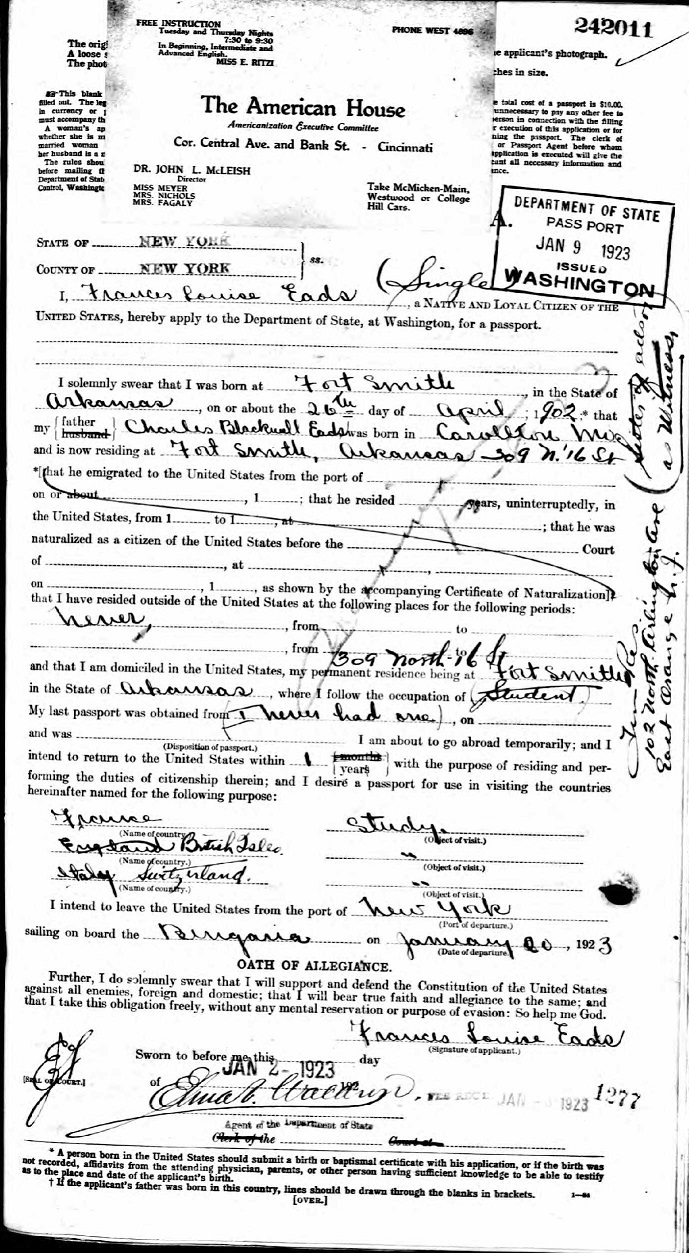 242011
FREE INSTRUCTION
Tuesday and Thursday Nights
7:30 to 9:30
In Beginning, Intermediate and
Advanced English.
MISS E. RITZI
PHONE WEST 4896
The American House
Americanization Executive Committee
Cor. Central Ave. and Bank St. - Cincinnati
DR. JOHN L. McLEISH
Director
MISS MEYER
MRS. NICHOLS
MRS. FAGALY
Take McMicken-Main,
Westwood or College
Hill Cars.
The orig
A loose
The phot
e applicant's photograph.
ches in size.
This blank
filled out. The leg
in currency or
must accompany th
A woman's ap
whether she is m
married woman
her husband is a n
The rules shou
before mailing
Department of Stat
Control, Washingt
e total cost of a passport is $10.00.
unnecessary to pay any other fee to
person in connection with the filling
r execution of this application or for
ning the passport. The clerk of
or Passport Agent before whom
application is executed will give the
cant all necessary information and
nce.
DEPARTMENT OF STATE
PASSPORT
JAN 9 1923
ISSUED
WASHINGTON
STATE OF NEW YORK
COUNTY OF NEW YORK
ss.
(Single)
I, Frances Louise Eads, a NATIVE AND LOYAL CITIZEN OF THE
UNITED STATES, hereby apply to the Department of State, at Washington, for a passport.
I solemnly swear that I was born at Fort Smith, in the State of
Arkansas, on or about the 26th day of April, 1902,* that
my {father husband} Charles Blackwall Eads was born in Carollton Mo
and is now residing at Fort Smith, Arkansas 309 N. 16 St
*[that he emigrated to the United States from the port of
on or about, 1; that he resided years, uninterruptedly, in
the United States, from 1 to 1, at; that he was
naturalized as a citizen of the United States before the Court
of, at,
on, 1, as shown by the accompanying Certificate of Naturalization]†
that I have resided outside of the United States at the following places for the following periods:
never, from to
, from to
309 North 16 St
and that I am domiciled in the United States, my permanent residence being at Fort Smith
in the State of Arkansas, where I follow the occupation of (Student)
My last passport was obtained from (I never had one), on
and was I am about to go abroad temporarily; and I
(Disposition of passport.)
intend to return to the United States within 1 {months years} with the purpose of residing and per-
forming the duties of citizenship therein; and I desire a passport for use in visiting the countries
hereinafter named for the following purpose:
France Study.
(Name of country.) (Object of visit.)
England British Isles "
(Name of country.) (Object of visit.)
Italy Switzerland. "
(Name of country.) (Object of visit.)
I intend to leave the United States from the port of New York
(Port of departure.)
sailing on board the Bengaria on January 20, 1923
(Date of departure.)
OATH OF ALLEGIANCE.
Further, I do solemnly swear that I will support and defend the Constitution of the United States
against all enemies, foreign and domestic; that I will bear true faith and allegiance to the same; and
that I take this obligation freely, without any mental reservation or purpose of evasion: So help me God.
Frances Louise Eads
(Signature of applicant.)
Sworn to before me this day
JAN 2 - 1923
[SEAL OF COURT.]
of 192
FEE REC'D JAN - 1923 1277
Agent of the Department of State
Clerk of the Court at
* A person born in the United States should submit a birth or baptismal certificate with his application, or if the birth was
not recorded, affidavits from the attending physician, parents, or other person having sufficient knowledge to be able to testify
as to the place and date of the applicant's birth.
† If the applicant's father was born in this country, lines should be drawn through the blanks in brackets.
[OVER.]
102 North Arlington Ave
East Orange N.J.
as Witness